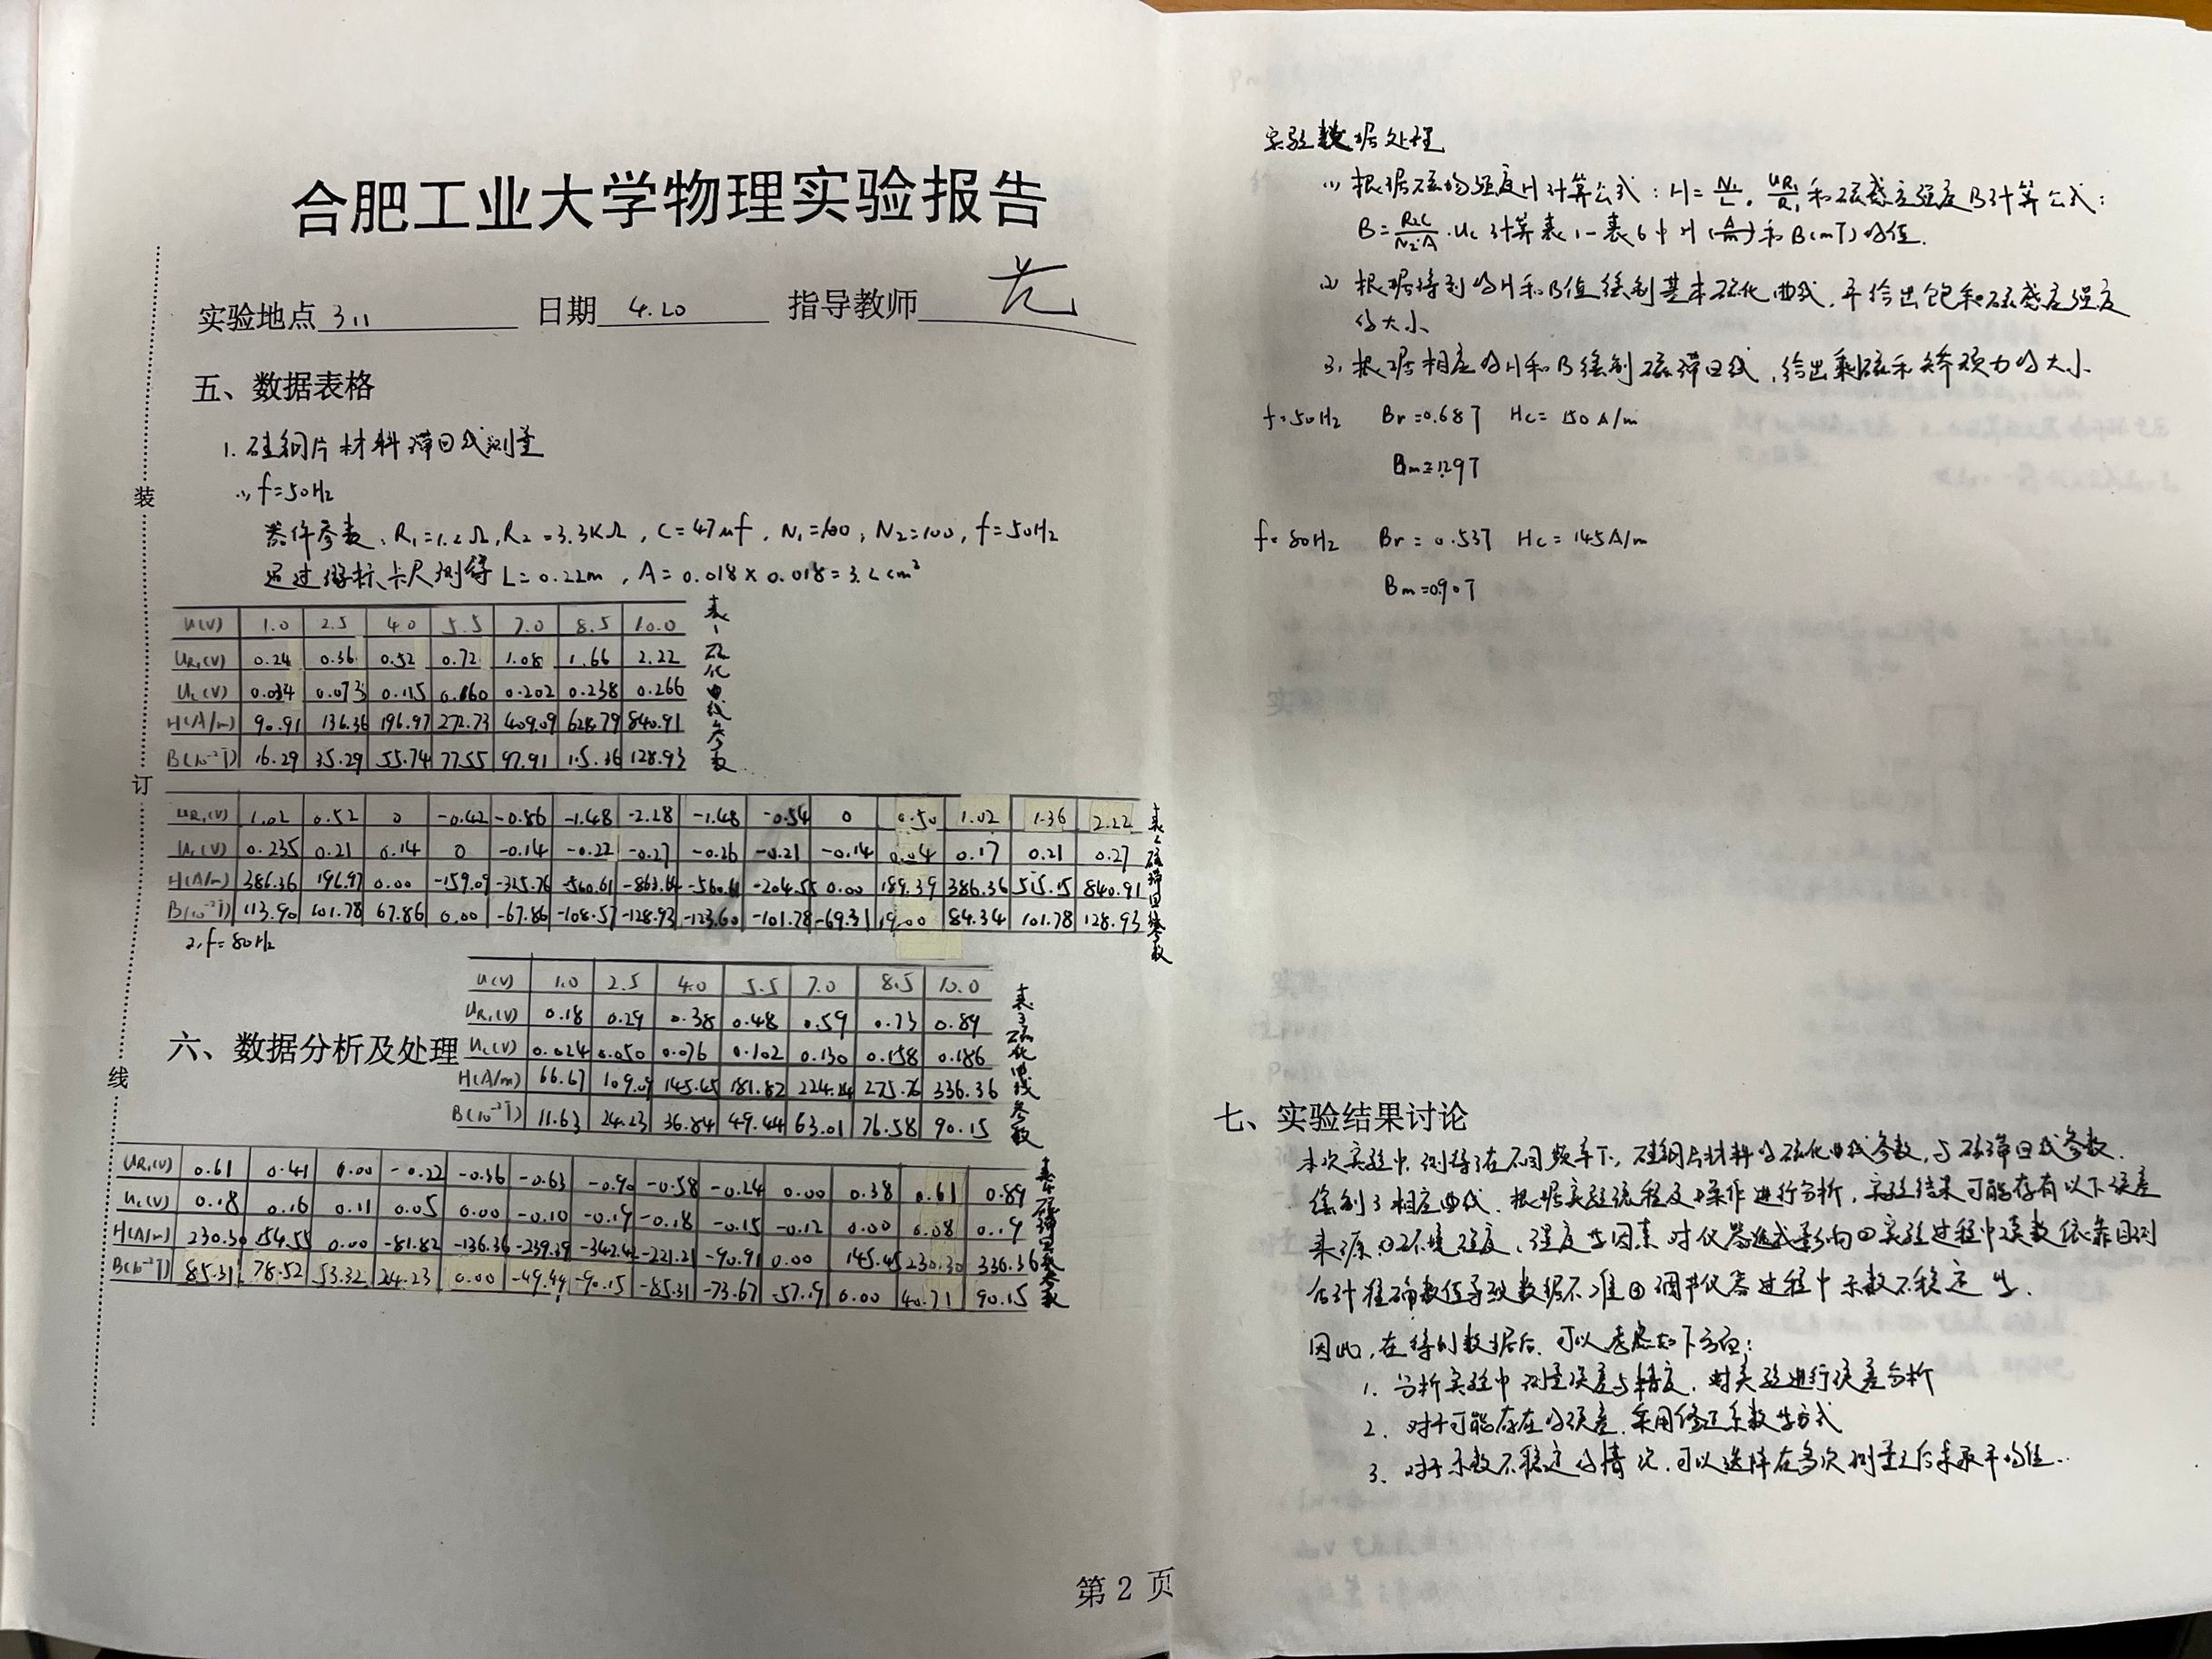 合肥工业大学物理实验报告
实验地点 311 日期 4.20 指导教师
五、数据表格
1. 硅钢片材料滞回线测量
(1) f=50Hz
器件参数: R₁=1.2Ω, R₂=3.3KΩ, C=47uf, N₁=100, N₂=100, f=50Hz
通过游标卡尺测得 L=0.22m, A=0.018×0.018=3.2cm²
表1 磁化曲线参数
U(V) 1.0 2.5 4.0 5.5 7.0 8.5 10.0
UR₁(V) 0.24 0.36 0.52 0.72 1.08 1.66 2.22
Uc(V) 0.034 0.073 0.115 0.160 0.202 0.238 0.266
H(A/m) 90.91 136.36 196.97 272.73 409.09 628.79 840.91
B(10⁻²T) 16.29 35.29 55.74 77.55 97.91 115.36 128.93
表2 磁滞回线参数
UR₁(V) 1.02 0.52 0 -0.42 -0.86 -1.48 -2.28 -1.48 -0.54 0 0.50 1.02 1.36 2.22
Uc(V) 0.235 0.21 0.14 0 -0.14 -0.22 -0.27 -0.26 -0.21 -0.14 0.04 0.17 0.21 0.27
H(A/m) 386.36 196.97 0.00 -159.09 -325.76 -560.61 -863.64 -560.61 -204.55 0.00 189.39 386.36 515.15 840.91
B(10⁻²T) 113.90 101.78 67.86 0.00 -67.86 -108.57 -128.93 -123.60 -101.78 -69.31 19.00 84.34 101.78 128.93
2, f=80Hz
表3 磁化曲线参数
U(V) 1.0 2.5 4.0 5.5 7.0 8.5 10.0
UR₁(V) 0.18 0.29 0.38 0.48 0.59 0.73 0.89
六、数据分析及处理
Uc(V) 0.024 0.050 0.076 0.102 0.130 0.158 0.186
H(A/m) 66.67 109.09 145.45 181.82 224.24 275.76 336.36
B(10⁻²T) 11.63 24.23 36.84 49.44 63.01 76.58 90.15
表4 磁滞回线参数
UR₁(V) 0.61 0.41 0.00 -0.22 -0.36 -0.63 -0.90 -0.58 -0.24 0.00 0.38 0.61 0.89
Uc(V) 0.18 0.16 0.11 0.05 0.00 -0.10 -0.19 -0.18 -0.15 -0.12 0.00 0.08 0.19
H(A/m) 230.30 154.55 0.00 -81.82 -136.36 -239.39 -342.42 -221.21 -90.91 0.00 145.45 230.30 336.36
B(10⁻²T) 85.31 78.52 53.32 24.23 0.00 -49.44 -90.15 -85.31 -73.67 -57.19 0.00 40.71 90.15
装
订
线
第 2 页
实验数据处理
(1) 根据磁场强度H计算公式: H=N₁/L·UR₁/R₁和磁感应强度B计算公式:
B=R₂C/N₂·A·Uc 计算表1-表6中H(A/m)和B(mT)的值.
(2) 根据得到的H和B值绘制基本磁化曲线,并给出饱和磁感应强度
的大小
3, 根据相应的H和B绘制磁滞回线,给出剩磁和矫顽力的大小
f=50Hz Br=0.68T Hc=150A/m
Bm=1.29T
f=80Hz Br=0.53T Hc=145A/m
Bm=0.90T
七、实验结果讨论
本次实验中,测得了在不同频率下,硅钢片材料的磁化曲线参数,与磁滞回线参数.
绘制了相应曲线.根据实验流程及操作进行分析,实验结果可能存有以下误差
来源:①环境湿度、温度等因素对仪器造成影响②实验过程中读数依靠目测
估计准确数值导致数据不准③调节仪器过程中示数不稳定等.
因此,在得到数据后,可以考虑如下方面:
1. 分析实验中测量误差与精度,对实验进行误差分析
2. 对于可能存在的误差,采用修正系数等方式
3. 对于示数不稳定的情况,可以选择在多次测量之后求取平均值.